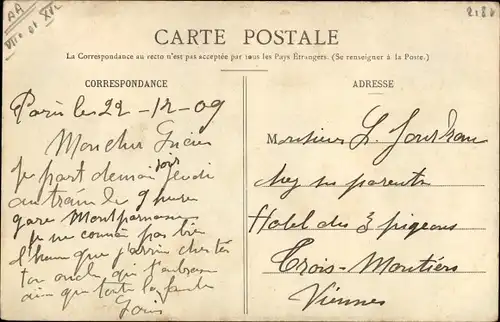 AA
VIIe et XVe
2188
CARTE POSTALE
La Correspondance au recto n'est pas acceptée par tous les Pays Étrangers. (Se renseigner à la Poste.)
CORRESPONDANCE
ADRESSE
Paris les 22-12-09
Mon cher Lucien
je part demain soir jeudi
au train de 9 heure
gare Montparnasse
je ne connai pas bien
l'heure que j'arrive chez ta
ton oncle, qui t'embrasse
ainsi que toute la famille
Louis
Monsieur L. Jourdain
chez ses parents
Hotel des 3 pigeons
Trois-Moutiers
Viennes